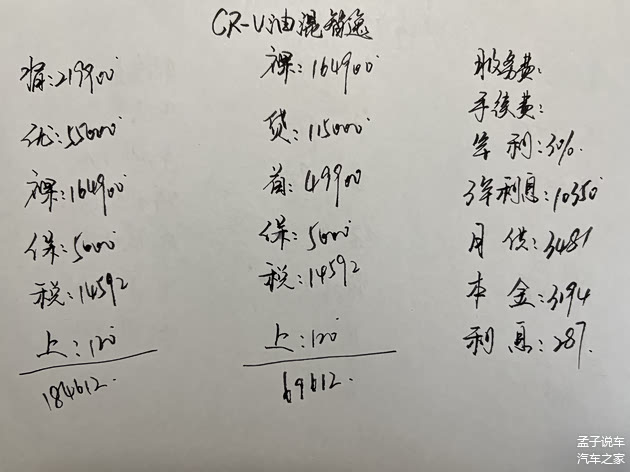 CR-V油混智逸
指:219900
优:55000
裸:164900
保:5000
税:14592
上:120
184612.
裸:164900
贷:115000
首:49900
保:5000
税:14592
上:120
69612.
服务费:
手续费:
年利:3%.
3年利息:10350
月供:3481
本金:3194
利息:287.
孟子说车
汽车之家